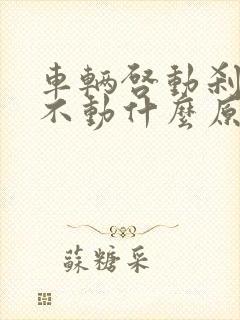 車輛啓動刹
不動什麼原
蘇糖采